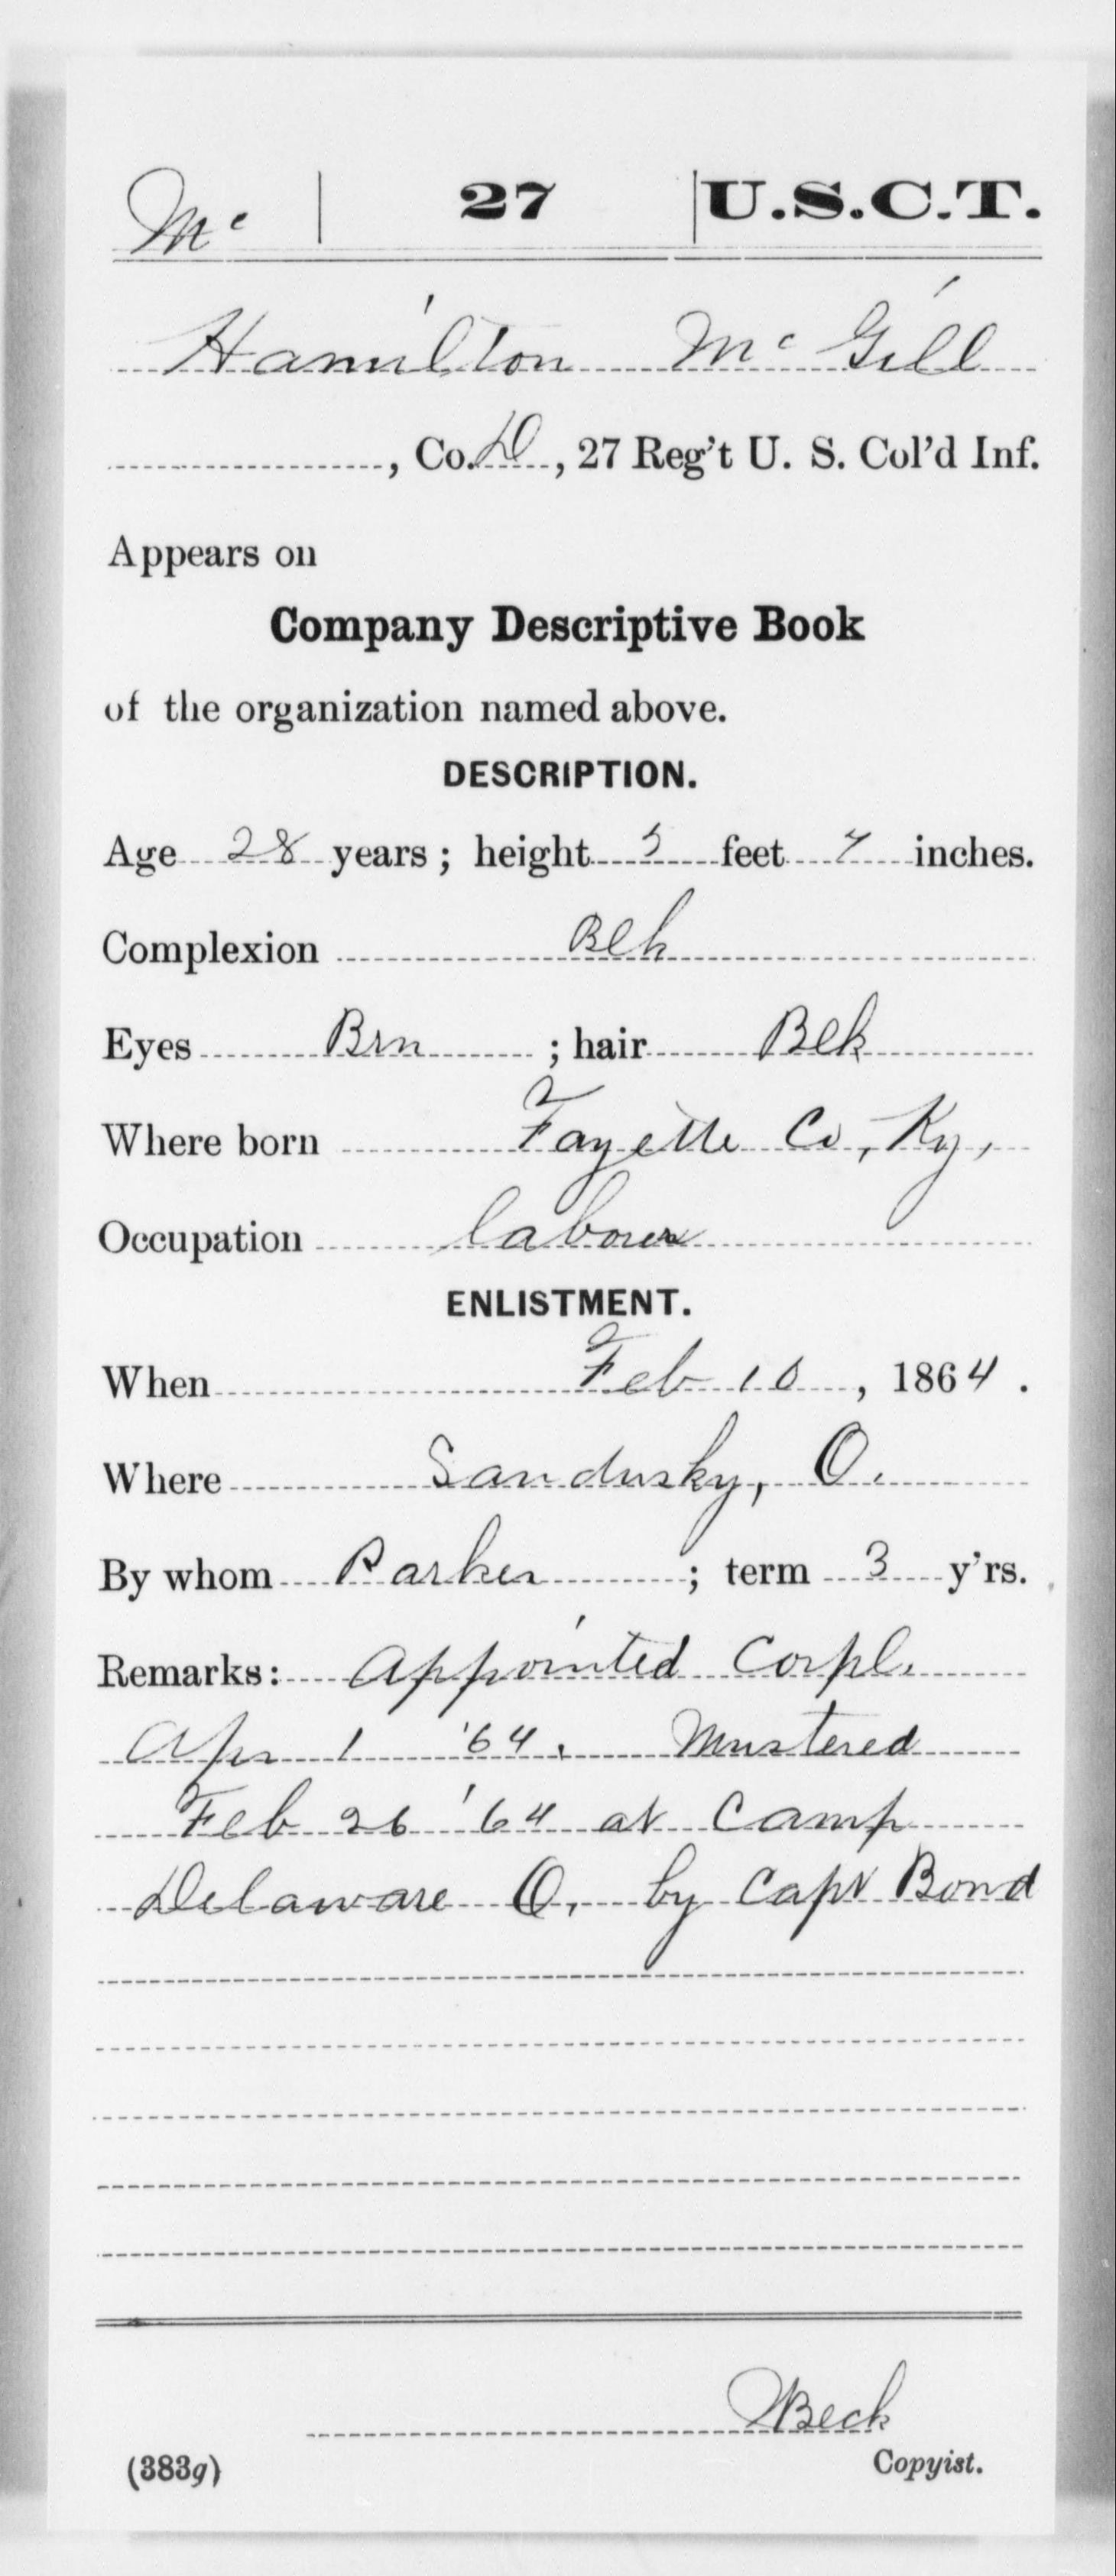 Mc | 27 | U.S.C.T.
Hamilton McGill
, Co. D, 27 Reg't U. S. Col'd Inf.
Appears on
Company Descriptive Book
of the organization named above.
DESCRIPTION.
Age 28 years; height 5 feet 7 inches.
Complexion Blk
Eyes Brn ; hair Blk
Where born Fayette Co, Ky,
Occupation laborer
ENLISTMENT.
When Feb 10, 1864.
Where Sandusky, O.
By whom Parker ; term 3 y'rs.
Remarks: Appointed Corpl.
Apr 1 '64. Mustered
Feb 26 '64 at Camp
Delaware O, by Capt Bond
Beck
(383g) Copyist.